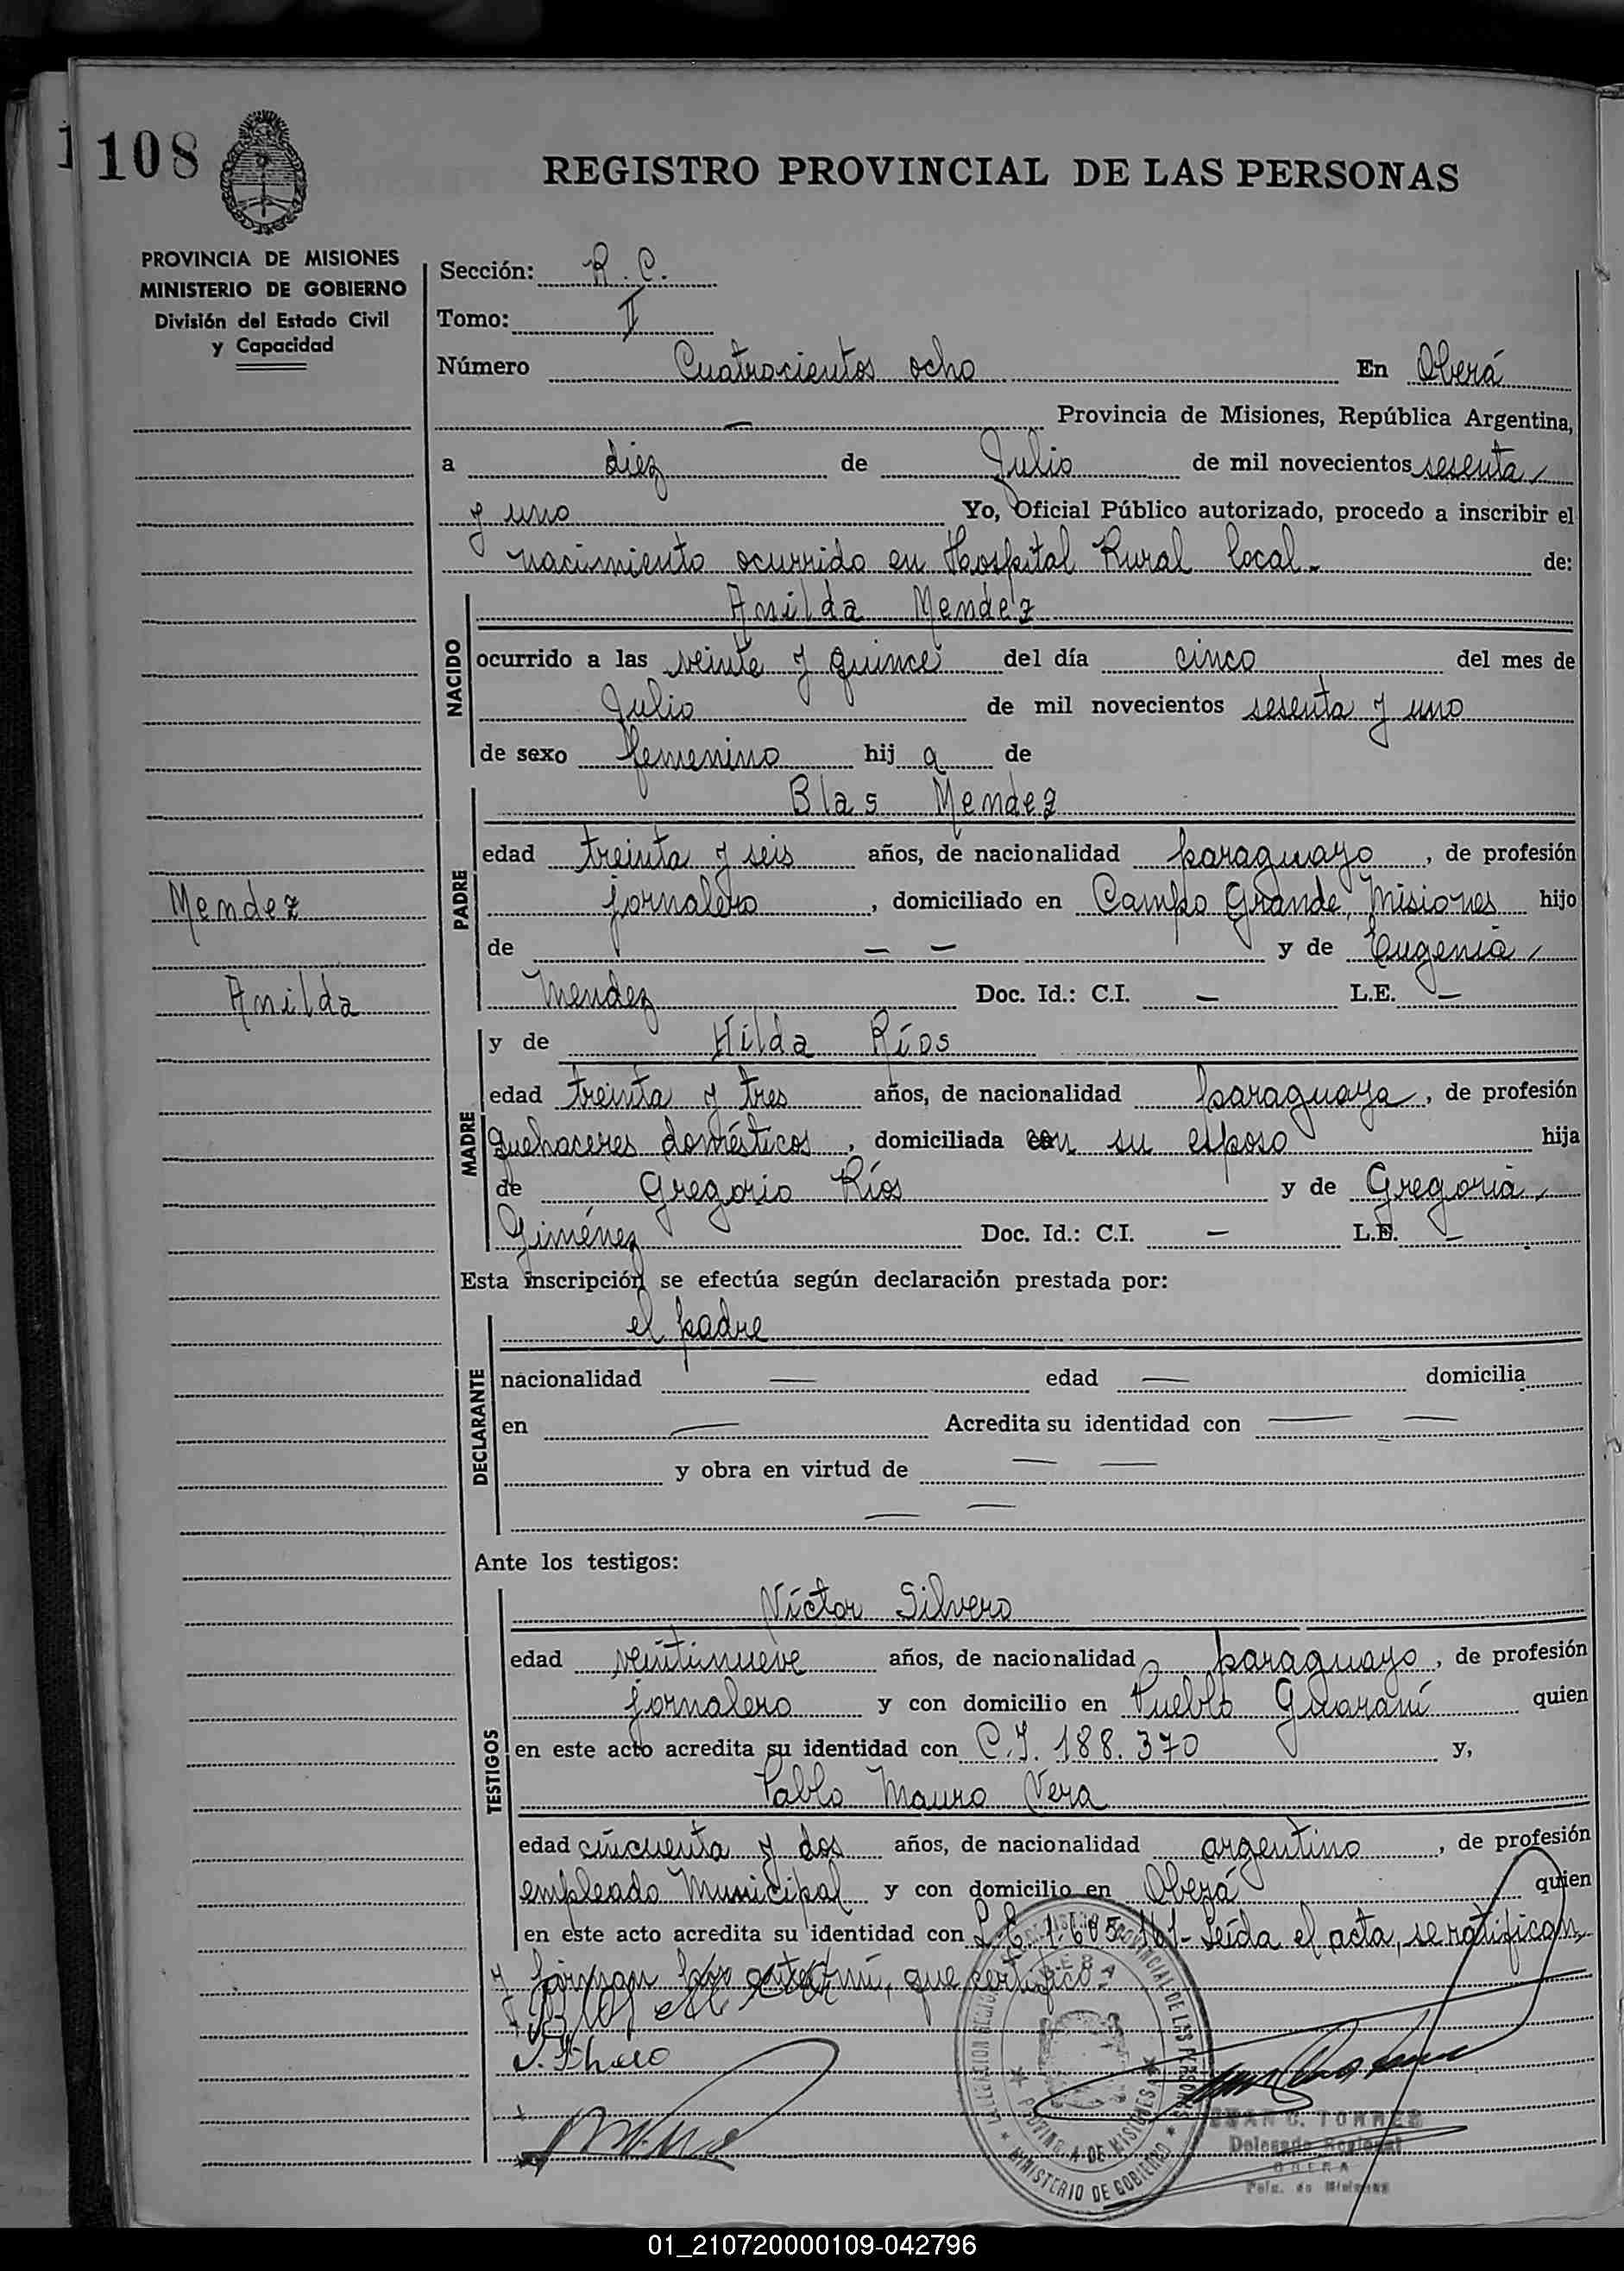 108
REGISTRO PROVINCIAL DE LAS PERSONAS
PROVINCIA DE MISIONES
MINISTERIO DE GOBIERNO
División del Estado Civil
y Capacidad
Sección: R. C.
Tomo: II
Número Cuatrocientos ocho En Oberá
— Provincia de Misiones, República Argentina,
a diez de Julio de mil novecientos sesenta
y uno Yo, Oficial Público autorizado, procedo a inscribir el
nacimiento ocurrido en Hospital Rural local.- de:
NACIDO
Anilda Mendez
ocurrido a las veinte y quince del día cinco del mes de
Julio de mil novecientos sesenta y uno
de sexo femenino hij a de
PADRE
Blas Mendez
edad treinta y seis años, de nacionalidad paraguayo, de profesión
jornalero, domiciliado en Campo Grande, Misiones hijo
de — — y de Eugenia
Mendez Doc. Id.: C.I. — L.E. —
Mendez
Anilda
MADRE
y de Hilda Ríos
edad treinta y tres años, de nacionalidad paraguaya, de profesión
quehaceres domésticos, domiciliada con su esposo hija
de Gregorio Ríos y de Gregoria
Giménez Doc. Id.: C.I. — L.E. —
Esta inscripción se efectúa según declaración prestada por:
DECLARANTE
el padre
nacionalidad — edad — domicilia
en — Acredita su identidad con — —
y obra en virtud de — —
— —
Ante los testigos:
TESTIGOS
Víctor Silvero
edad veintinueve años, de nacionalidad paraguayo, de profesión
jornalero y con domicilio en Pueblo Guaraní quien
en este acto acredita su identidad con C.I. 188.370 y,
Pablo Mauro Vera
edad cincuenta y dos años, de nacionalidad argentino, de profesión
empleado Municipal y con domicilio en Oberá quien
en este acto acredita su identidad con L.E. Leída el acta, se ratifican
y firman por ante mí, que certifico.-
PROVINCIAL DE LAS PERSONAS
PROVINCIA DE MISIONES
MINISTERIO DE GOBIERNO
JUAN C. TORRES
Delegado Regional
OBERA
Pcia. de Misiones
01_210720000109-042796